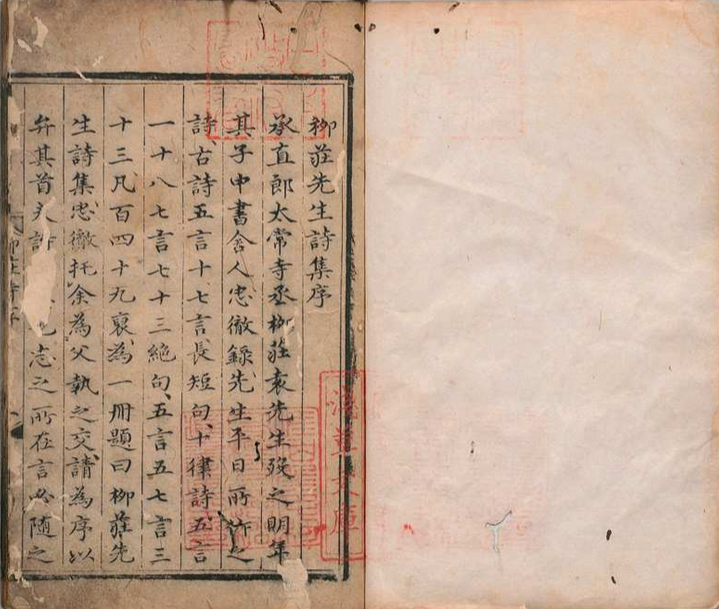 柳莊先生詩集序
承直郎太常寺丞柳莊袁先生歿之明年
其子中書舍人忠徹錄先生平日所作之
詩古詩五言十七言長短句十律詩五言
一十八七言七十三絕句五言五七言三
十三凡百四十九裒為一冊題曰柳莊先
生詩集忠徹托余為父執之交請為序以
弁其首夫詩
志之所在言必隨之